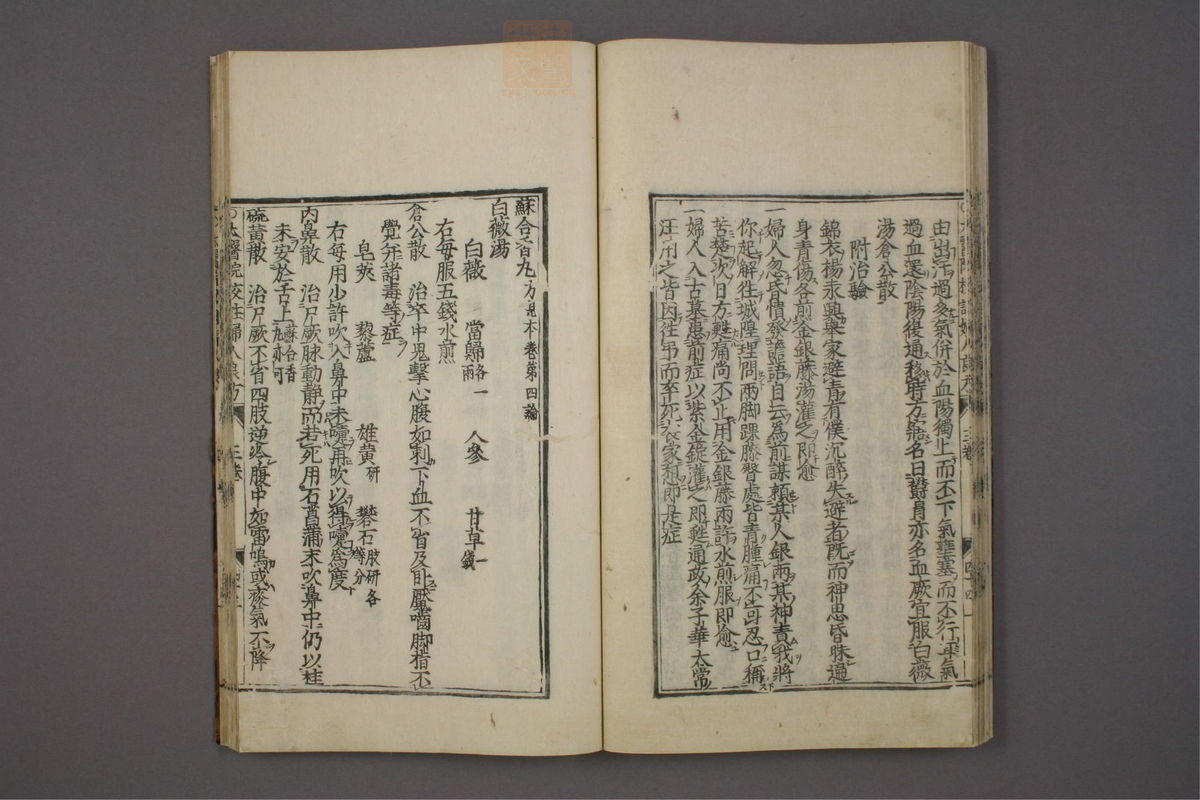 由出汗過多氣併於血陽獨上而不下氣壅塞而不行
過血還陰陽復通移時方寤名曰鬱冒亦名血厥宜服白薇
湯倉公散
附治驗
錦衣楊永興舉家避青有僕沉醉失避者既而神思昏昧遍
身青傷各煎金銀藤湯灌之即愈
一婦人忽昏憒發譫語自云為前謀賴某人銀兩某神責我將
你起解往城隍理問兩脚踝膝臀處皆青腫痛不可忍口稱
苦楚次日方甦痛尚不止用金銀藤兩許水煎服即愈
一婦人入古墓患前症以紫金錠灌之即甦通政余子華太常
汪用之皆因往吊而卒死喪家想即是症
三卷
蘇合香丸方見本卷第四論
白薇湯
白薇 當歸各一兩 人參 甘草一錢
右每服五錢水煎
倉公散 治卒中鬼擊心腹如刺下血不省及臥魘嚙脚指不
覺并諸毒等症
皂莢 藜蘆 雄黃研 礬石胶研各等分
右每用少許吹入鼻中未嚏再吹以得嚏為度
內鼻散 治尸厥脉動靜而若死用石菖蒲末吹鼻中仍以桂
末安於舌上蘇合香丸亦可
硫黃散 治尸厥不省四肢逆冷腹中如雷鳴或痰氣不降
太醫院校註婦人良方 三卷